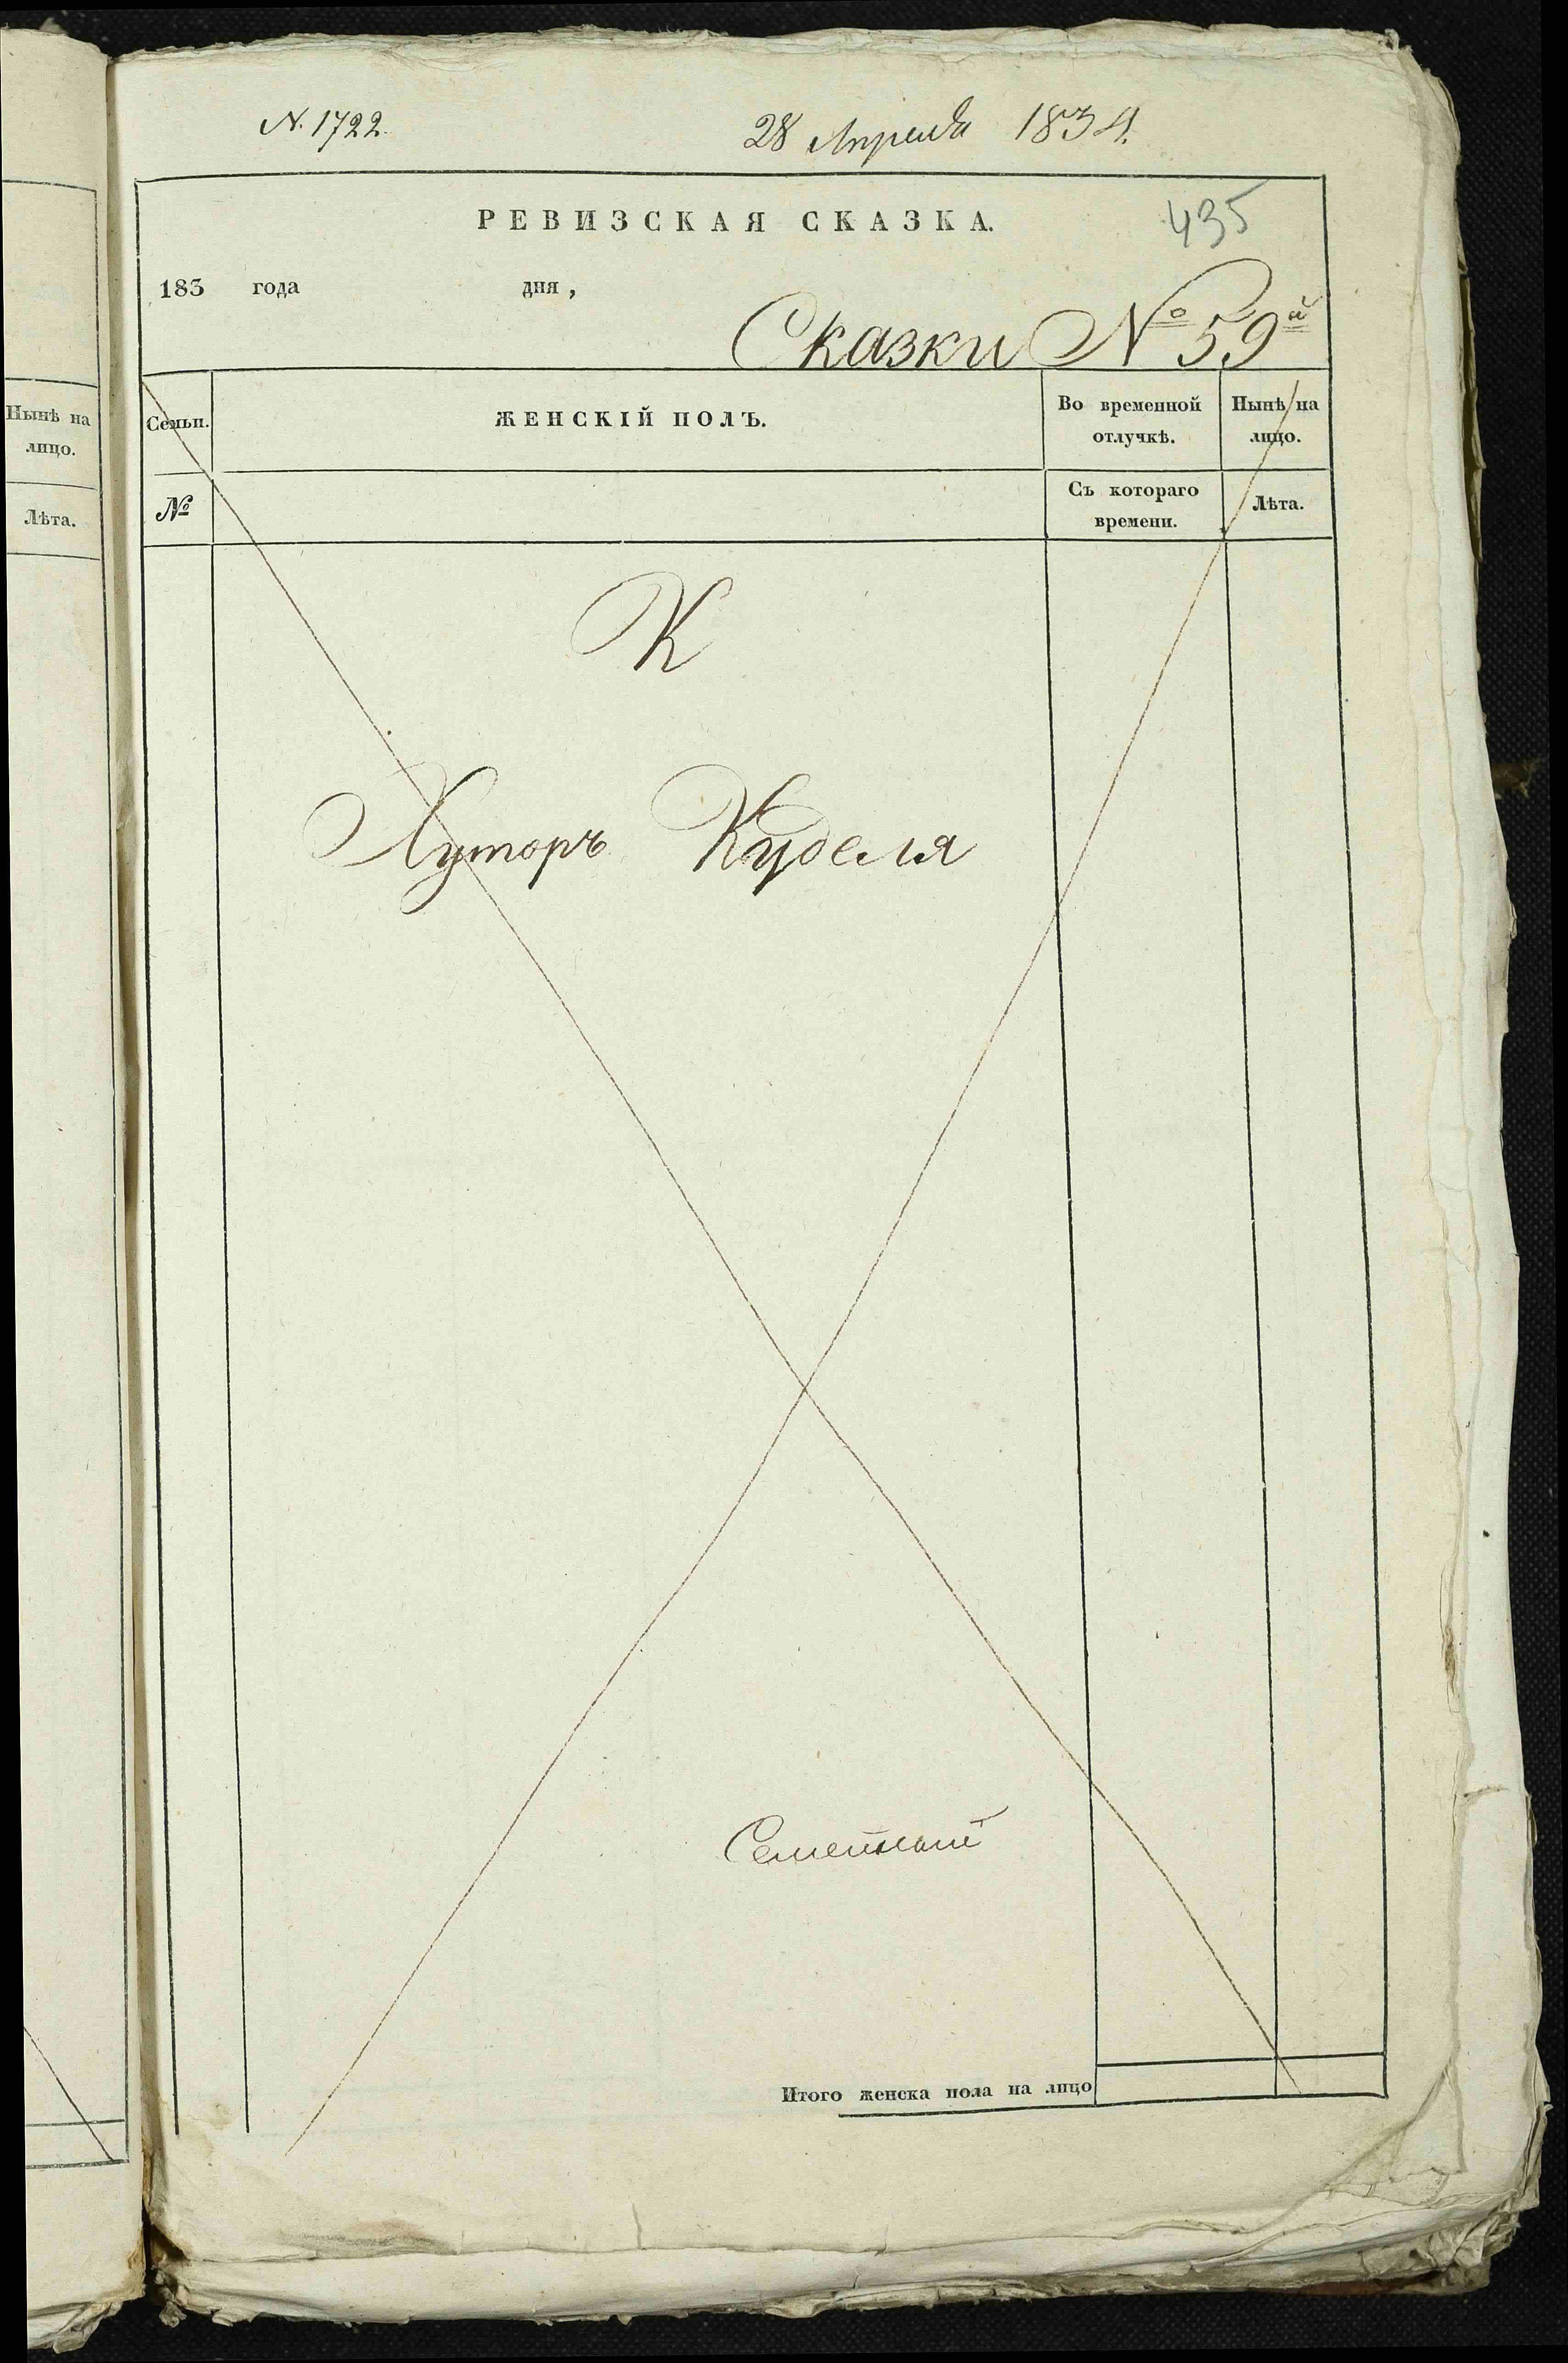 Нынѣ на
лицо.
Лѣта.
N. 1722.
28 Апреля 1834.
РЕВИЗСКАЯ СКАЗКА.
435
183 года дня,
Сказки № 59й
Семьи.
ЖЕНСКІЙ ПОЛЪ.
Во временной
отлучкѣ.
Нынѣ на
лицо.
№
Съ котораго
времени.
Лѣта.
К
Хуторъ Куделя
Итого женска пола на лицо